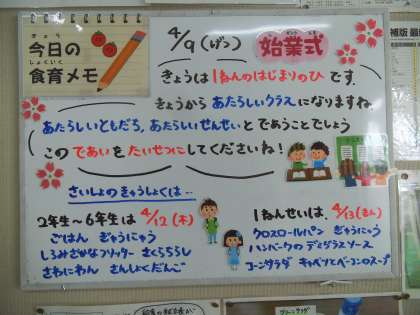 きょう
今日の
しょくいく
食育メモ
4/9(げつ) 始業式
きょうは1ねんのはじまりのひです。
きょうからあたらしいクラスになりますね
あたらしいともだち、あたらしいせんせいとであうことでしょう
このであいをたいせつにしてくださいね!
さいしょのきゅうしょくは…
2年生~6年生は4/12(木)
ごはん ぎゅうにゅう
しろみざかなフリッター さくらちらし
さわにわん さんしょくだんご
1ねんせいは、4/13(きん)
クロスロールパン ぎゅうにゅう
ハンバーグのデミグラスソース
コーンサラダ キャベツとベーコンのスープ